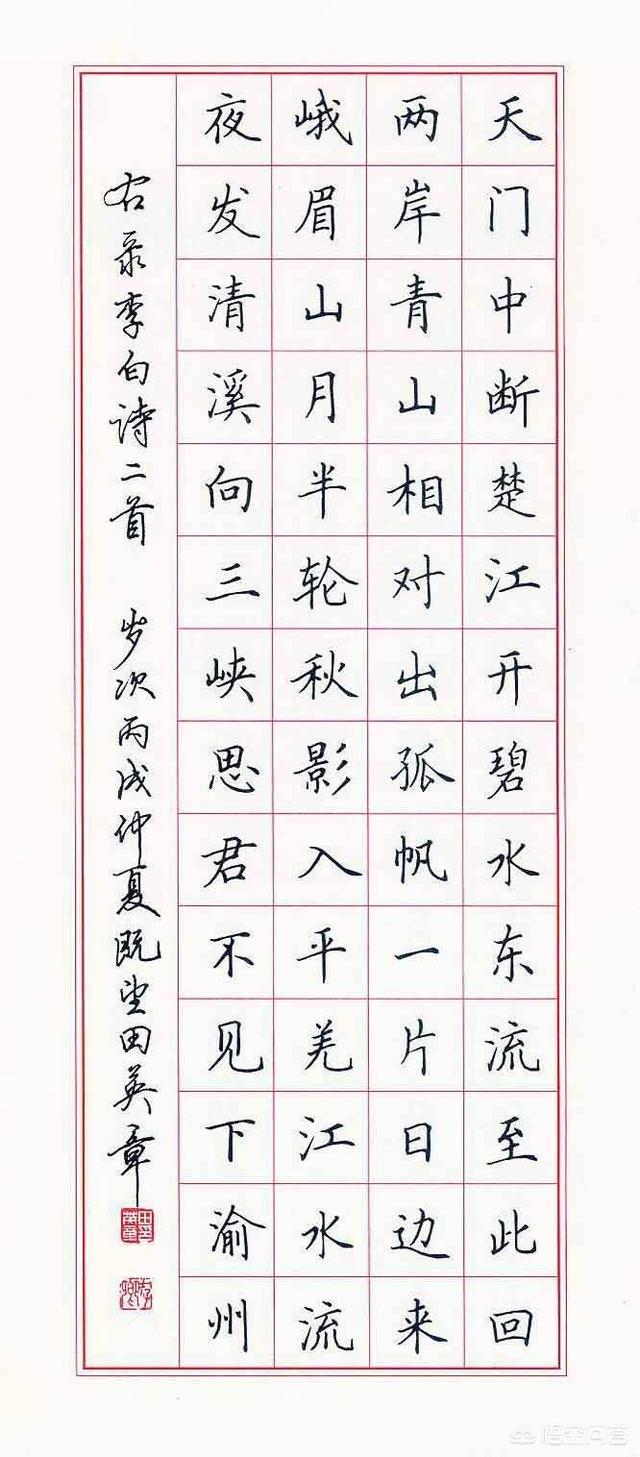 天门中断楚江开碧水东流至此回
两岸青山相对出孤帆一片日边来
峨眉山月半轮秋影入平羌江水流
夜发清溪向三峡思君不见下渝州
右录李白诗二首 岁次丙戌仲夏既望田英章
悟空问答